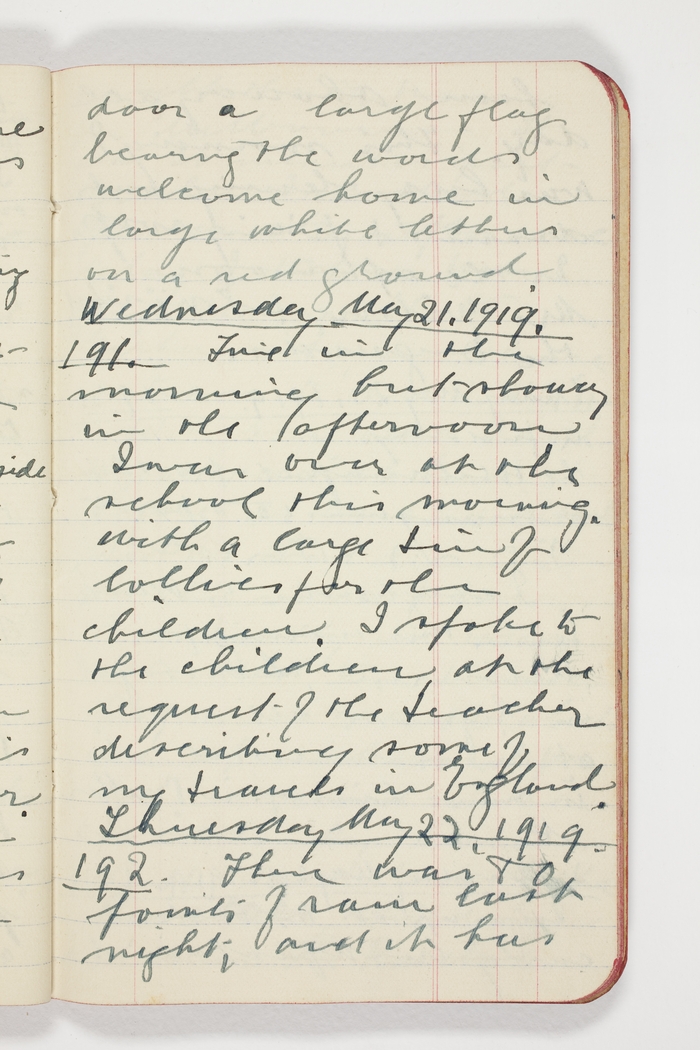 door a large flag
bearing the words
welcome home in
large white letters
on a red ground
Wednesday May 21. 1919.
191. Fine in the
morning but showery
in the afternoon
I was over at the
school this morning.
with a large tin of
lollies for the
children. I spoke to
the children at the
request of the teacher
describing some of
my travels in England.
Thursday May 22. 1919.
192. There was 
points of rain last
night, and it has
side